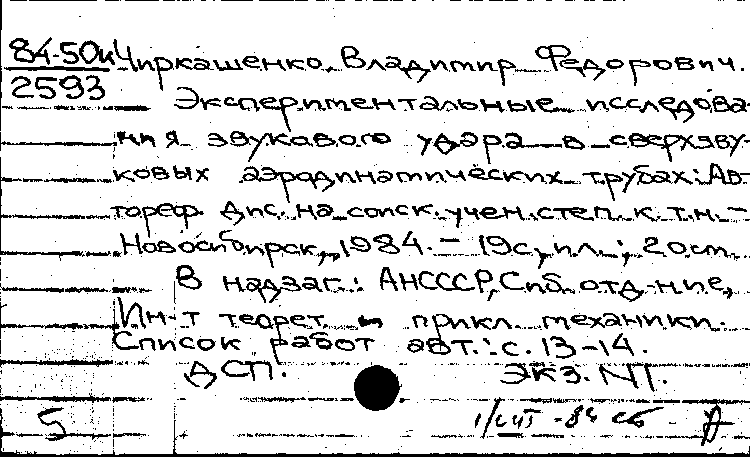 84-50и Чиркашенко, Владимир Федорович.
2593
Экспериментальные исследова-
ния звукового удара в сверхзву-
ковых аэродинамических трубах: Ав-
тореф. дис. на соиск. учен. степ. к.т.н. –
Новосибирск, 1984. – 19с., ил.; 20см.
В надзаг.: АНСССР, Сиб. отд-ние,
Ин-т теорет. и прикл. механики.
Список работ авт.: с. 13-14.
ДСП. Экз. N1.
5